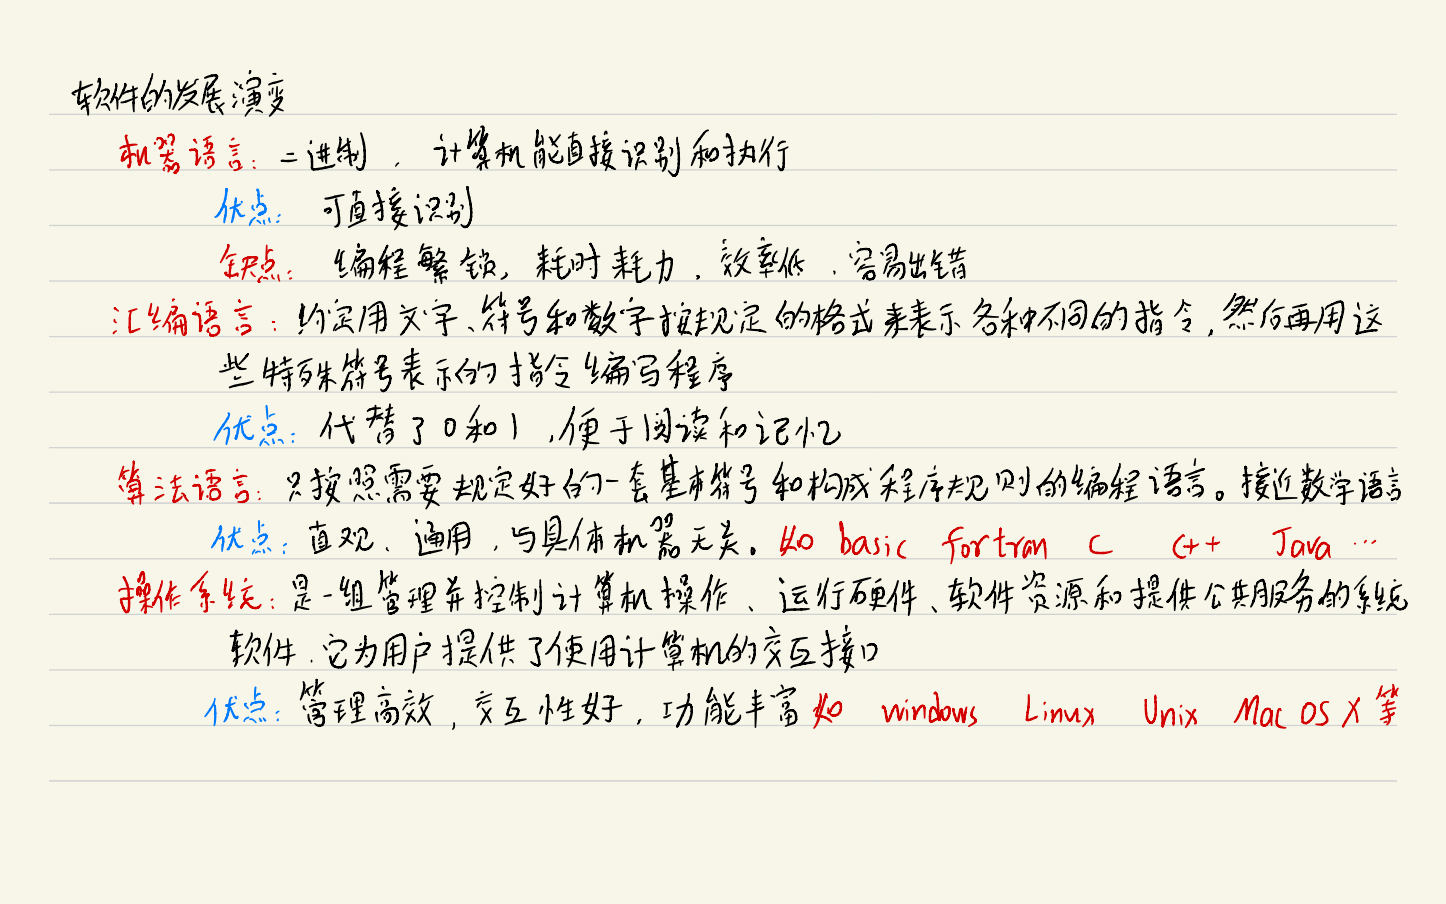 软件的发展演变
机器语言：二进制，计算机能直接识别和执行
优点：可直接识别
缺点：编程繁锁，耗时耗力，效率低，容易出错
汇编语言：约定用文字、符号和数字按规定的格式来表示各种不同的指令，然后再用这
些特殊符号表示的指令编写程序
优点：代替了0和1，便于阅读和记忆
算法语言：只按照需要规定好的一套基本符号和构成程序规则的编程语言。接近数学语言
优点：直观、通用，与具体机器无关。如 basic fortran C C++ Java …
操作系统：是一组管理并控制计算机操作、运行硬件、软件资源和提供公共服务的系统
软件，它为用户提供了使用计算机的交互接口
优点：管理高效，交互性好，功能丰富 如 windows Linux Unix Mac OS X 等